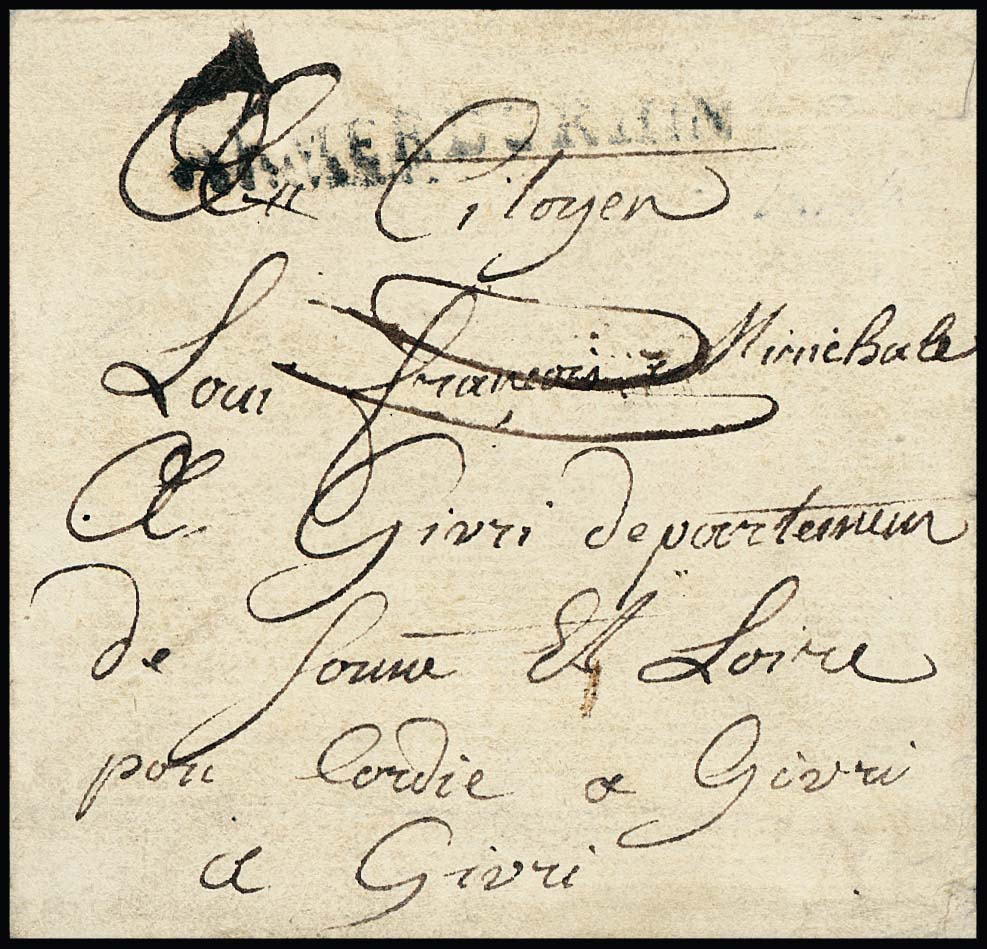 ARM. DU RHIN
Au Citoyen
Loui françois Minichale
A Givri departemem
de Sonne Et Loire
pou Cordie a Givri
a Givri